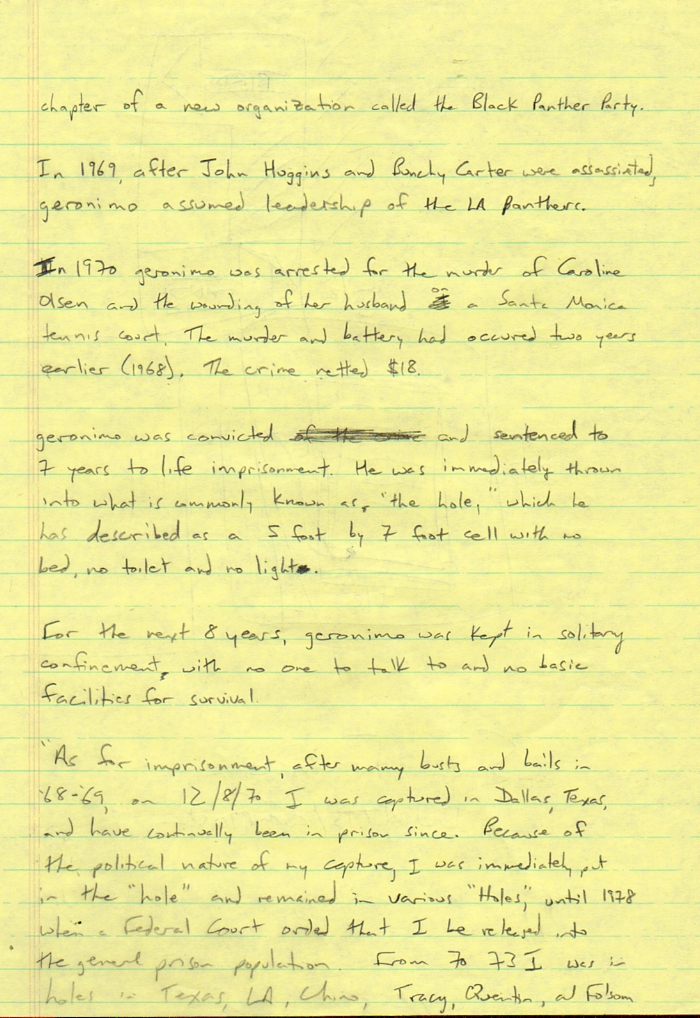 chapter of a new organization called the Black Panther Party.
In 1969, after John Huggins and Bunchy Carter were assassinated,
geronimo assumed leadership of the LA Panthers.
In 1970 geronimo was arrested for the murder of Caroline
Olsen and the wounding of her husband on a Santa Monica
tennis court. The murder and battery had occured two years
earlier (1968). The crime netted $18.
geronimo was convicted of the crime and sentenced to
7 years to life imprisonment. He was immediately thrown
into what is commonly known as, "the hole," which he
has described as a 5 foot by 7 foot cell with no
bed, no toilet and no light.
For the next 8 years, geronimo was kept in solitary
confinement, with no one to talk to and no basic
facilities for survival.
"As for imprisonment, after many busts and bails in
'68-'69, on 12/8/70 I was captured in Dallas, Texas,
and have continually been in prison since. Because of
the political nature of my capture, I was immediately put
in the "hole" and remained in various "Holes," until 1978
when a Federal Court orded that I be released into
the general prison population. From 70 73 I was in
holes in Texas, LA, Chino, Tracy, Quentin, at Folsom